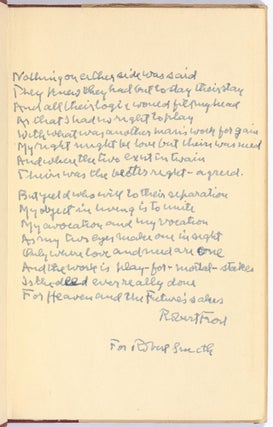 Nothing on either side was said
They knew they had but to stay their stay
And all their logic would fill my head
As that I had no right to play
With what was another man's work for gain
My right might be love but theirs was need
And where the two exist in twain
Theirs was the better right - agreed.
But yield who will to their separation
My object in living is to unite
My avocation and my vocation
As my two eyes make one in sight
Only where love and need are One
And the work is play for mortal stakes
Is the deed ever really done
For Heaven and the Future's sakes
Robert Frost
For Robert Smith